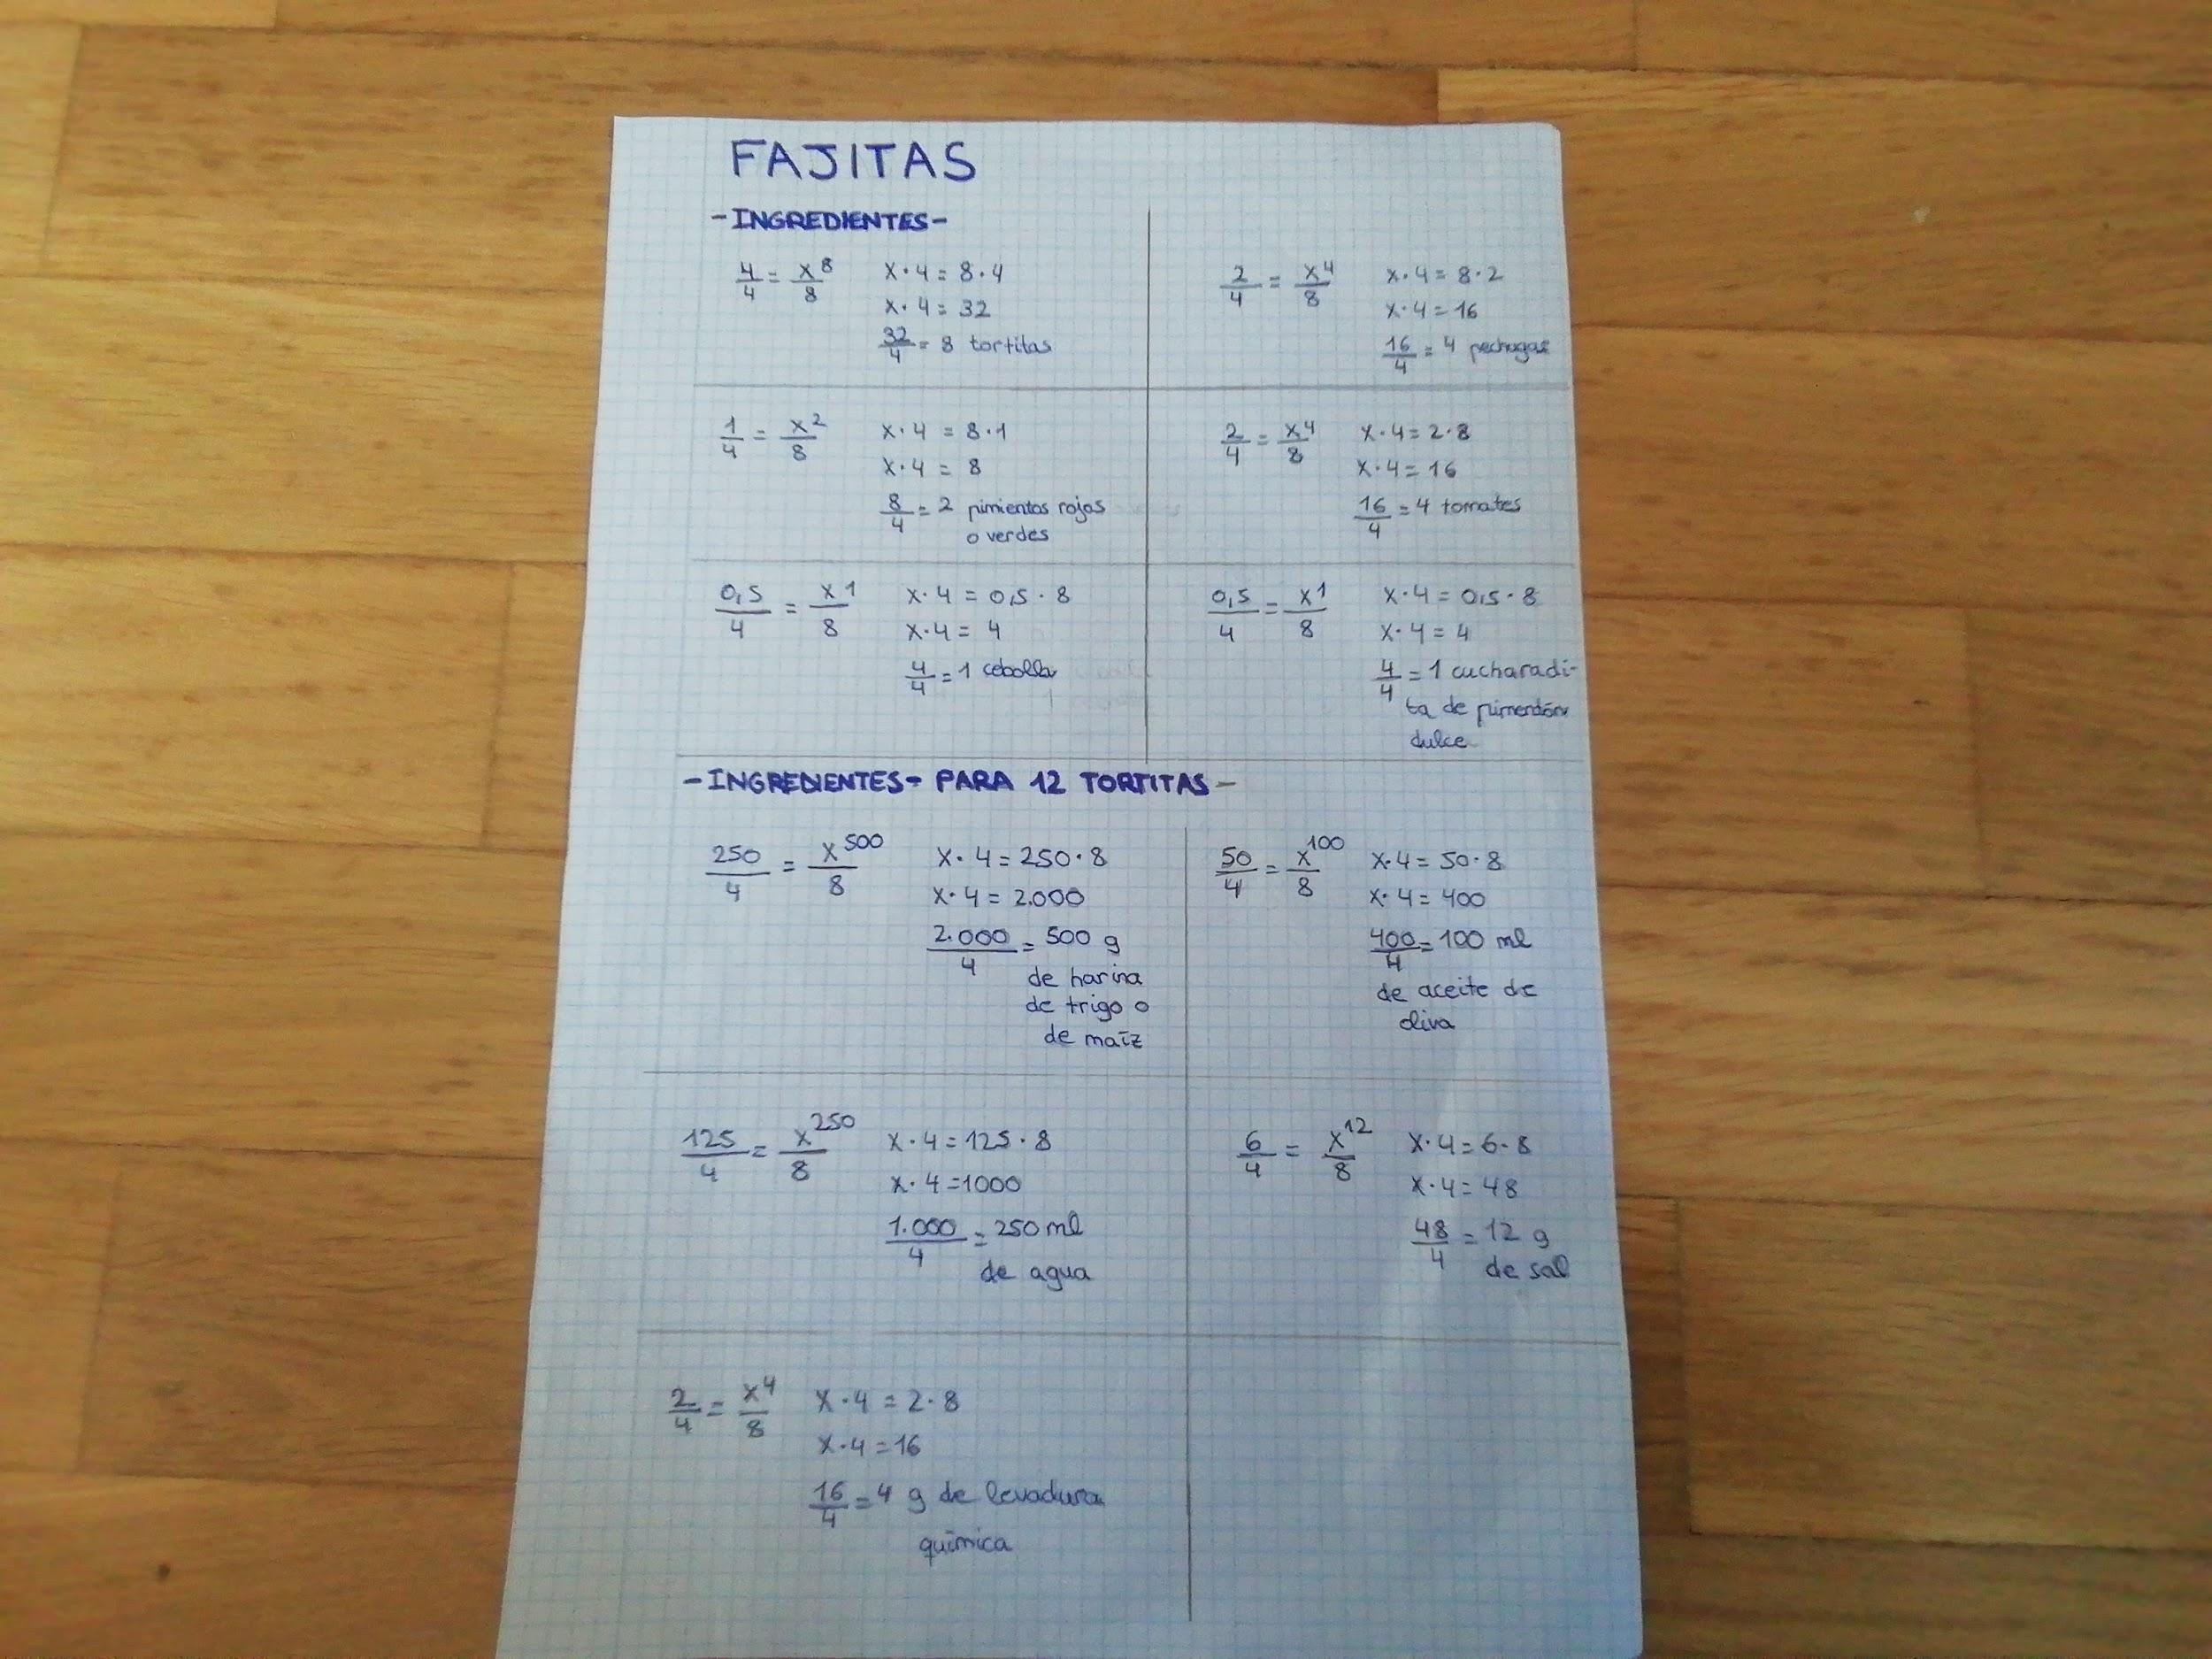 FAJITAS
-INGREDIENTES-
4/4 = x⁸/8
x·4 = 8·4
x·4 = 32
32/4 = 8 tortitas
2/4 = x⁴/8
x·4 = 8·2
x·4 = 16
16/4 = 4 pechugas
1/4 = x²/8
x·4 = 8·1
x·4 = 8
8/4 = 2 pimientos rojos
o verdes
2/4 = x⁴/8
x·4 = 2·8
x·4 = 16
16/4 = 4 tomates
0,5/4 = x¹/8
x·4 = 0,5·8
x·4 = 4
4/4 = 1 cebolla
0,5/4 = x¹/8
x·4 = 0,5·8
x·4 = 4
4/4 = 1 cucharadi-
ta de pimentón
dulce
-INGREDIENTES- PARA 12 TORTITAS-
250/4 = x⁵⁰⁰/8
x·4 = 250·8
x·4 = 2.000
2.000/4 = 500 g
de harina
de trigo o
de maíz
50/4 = x¹⁰⁰/8
x·4 = 50·8
x·4 = 400
400/4 = 100 ml
de aceite de
oliva
125/4 = x²⁵⁰/8
x·4 = 125·8
x·4 = 1000
1.000/4 = 250 ml
de agua
6/4 = x¹²/8
x·4 = 6·8
x·4 = 48
48/4 = 12 g
de sal
2/4 = x⁴/8
x·4 = 2·8
x·4 = 16
16/4 = 4 g de levadura
química